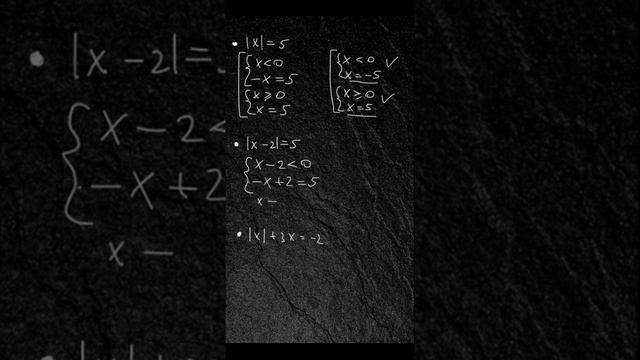 • |x| = 5
x < 0
-x = 5
x ⩾ 0
x = 5
x < 0 ✓
x = -5
x ⩾ 0 ✓
x = 5
• |x - 2| = 5
x - 2 < 0
-x + 2 = 5
x -
• |x| + 3x = -2